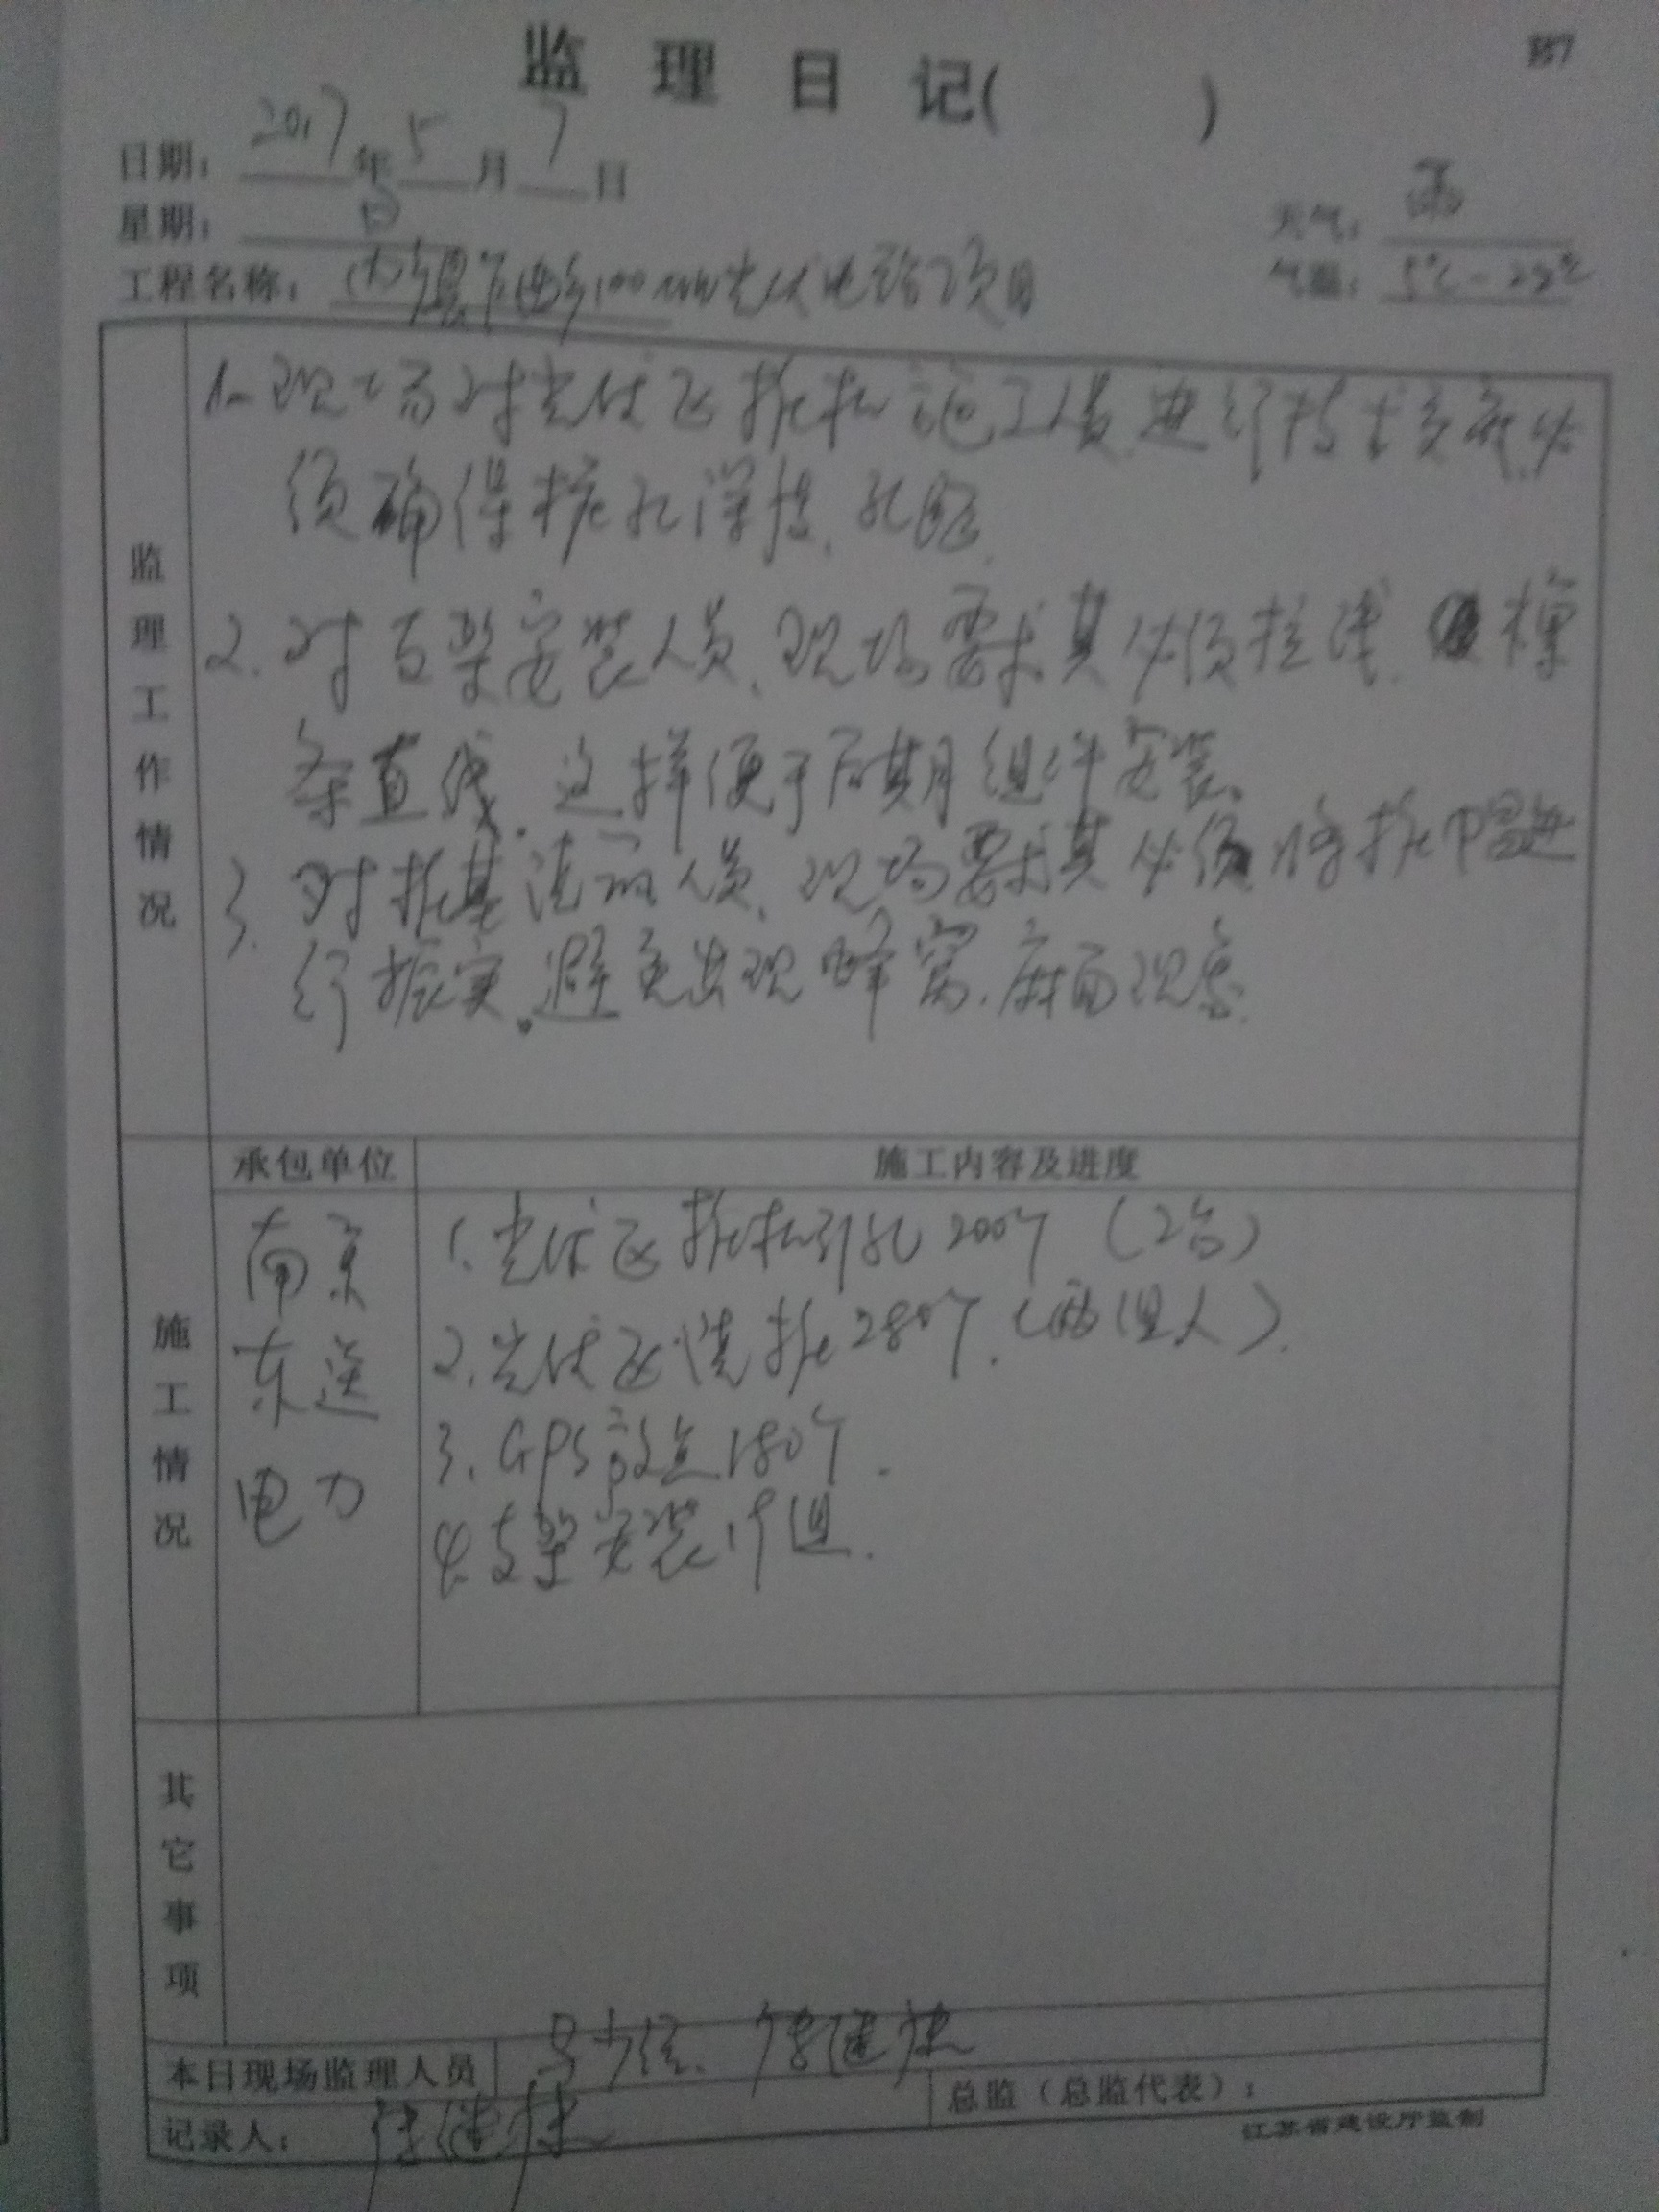 监理日记( )
B7
日期: 2017年5月7日
星期: 日
天气: 雨
工程名称: 100MW光伏电站项目
气温: 5℃-22℃
监理工作情况
1. 现场对光伏区桩机施工人员进行技术交底,必
须确保桩孔深度、孔径.
2. 对支架安装人员、现场要求其必须拉线. 檩
条直线. 这样便于后期组件安装。
3. 对桩基浇筑人员、现场要求其必须将桩帽进
行振实。避免出现蜂窝、麻面现象.
施工情况
承包单位
施工内容及进度
南京
东送
电力
1. 光伏区桩机引孔200个 (2台)
2. 光伏区浇桩280个. (两组人).
3. GPS放点180个.
4. 支架安装 组.
其它事项
本日现场监理人员
记录人:
总监(总监代表):
江苏省建设厅监制